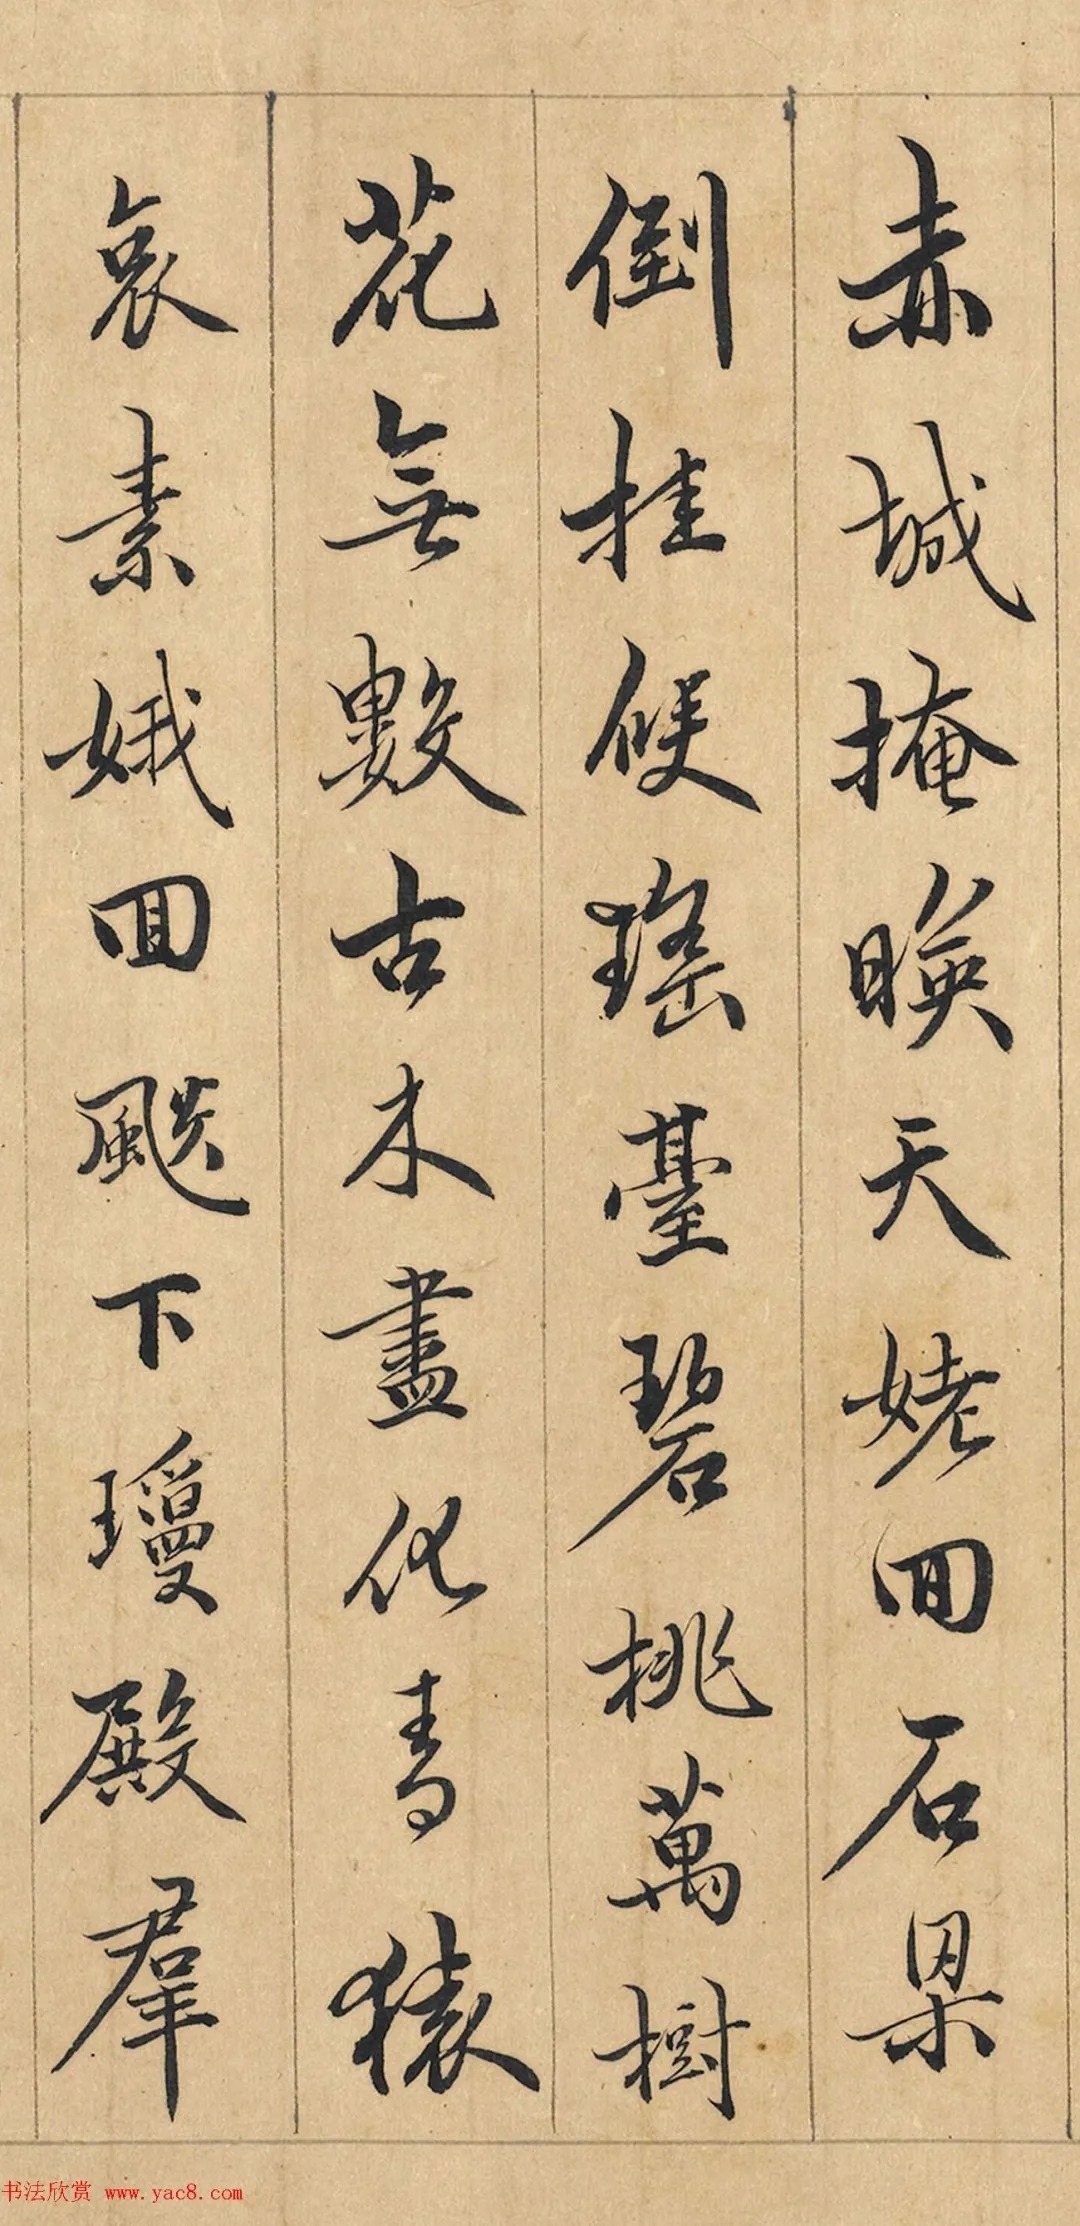 赤城掩暎天姥回石杲
倒挂候瑤臺碧桃萬樹
花無數古木盡化青猿
哀素娥回飇下瓊殿羣
书法欣赏 www.yac8.com